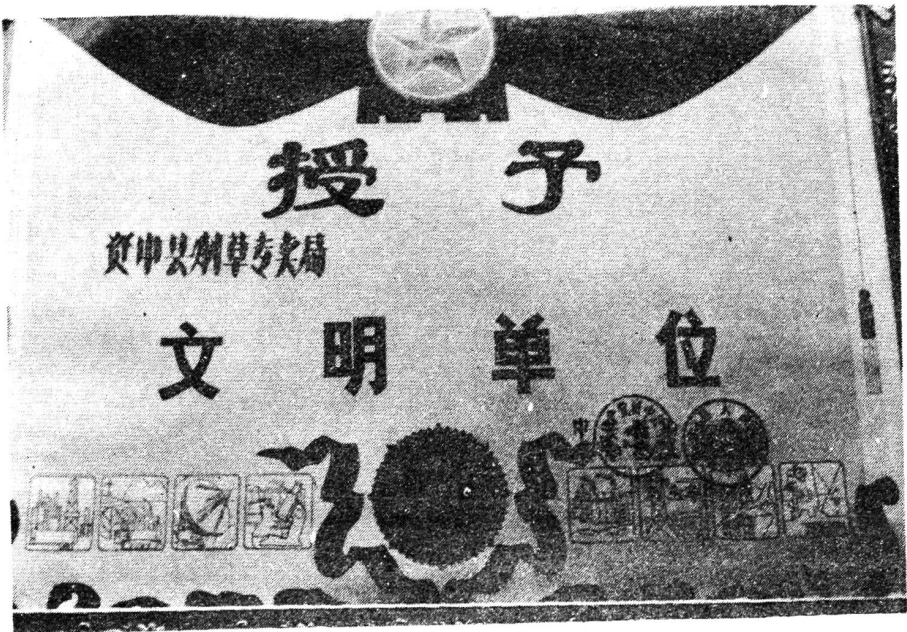 授予
资中县烟草专卖局
文明单位
中